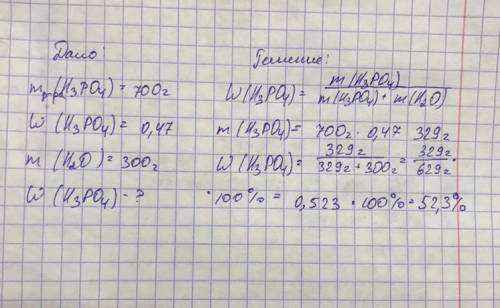 Дано:
mр-ра(H₃PO₄) = 700г
W(H₃PO₄) = 0,47
m(H₂O) = 300г
W(H₃PO₄) - ?
Решение:
W(H₃PO₄) = m(H₃PO₄) / m(H₃PO₄) + m(H₂O)
m(H₃PO₄) = 700г · 0,47 329г
W(H₃PO₄) = 329г / 329г + 300г = 329г / 629г ·
· 100% = 0,523 · 100% = 52,3%